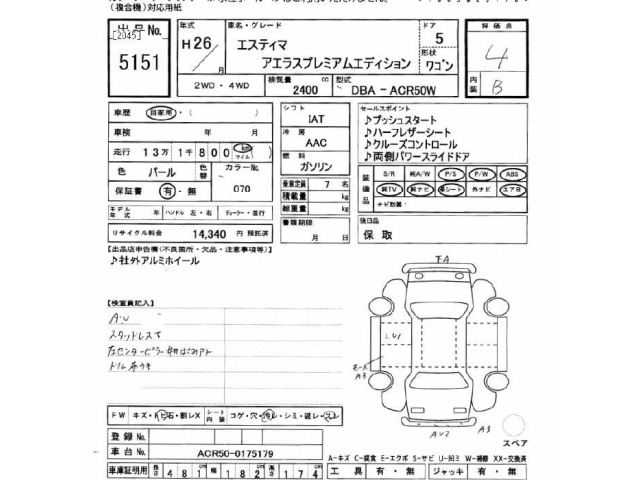 (複合機)対応用紙
出品No.
[2045]
5151
年式
H26/
月
車名・グレード
エスティマ
アエラスプレミアムエディション
ドア
5
形状
ワゴン
評価点
4
内装
B
2WD・4WD
排気量
2400
cc
型式
DBA - ACR50W
車歴
自家用・( )
車検
年
月
走行
13万1千800
km
マイル
色
パール
色替
カラーNo.
070
保証書
有・無
モデル年式
年
ハンドル 左・右
ディーラー・並行
リサイクル料金
14,340
円
預託済
シフト
IAT
冷房
AAC
燃料
ガソリン
乗車定員
7
名
積載量
kg
総重量
kg
書類期限
月
日
セールスポイント
♪プッシュスタート
♪ハーフレザーシート
♪クルーズコントロール
♪両側パワースライドドア
装備品
S/R
純A/W
P/S
P/W
ABS
純TV
純ナビ
革シート
外ナビ
エアB
ナビ枚数:
後日品
保 取
[出品店申告欄(不良箇所・欠品・注意事項等)]
♪社外アルミホイール
【検査員記入】
A・U
スタッドレス
F.A
U1
E-A
A3
AU2
A3
スペア
FW
キズ・トビ石・割レX
シート内装
コゲ・穴・汚レ・シミ・破レ・スレ
登録No.
車台No.
ACR50-0175179
A-キズ C-腐食 E-エクボ S-サビ U-凹ミ W-補修 XX-交換済
車庫証明用
長さ
481
幅
182
高さ
174
工具
有・無
ジャッキ
有・無